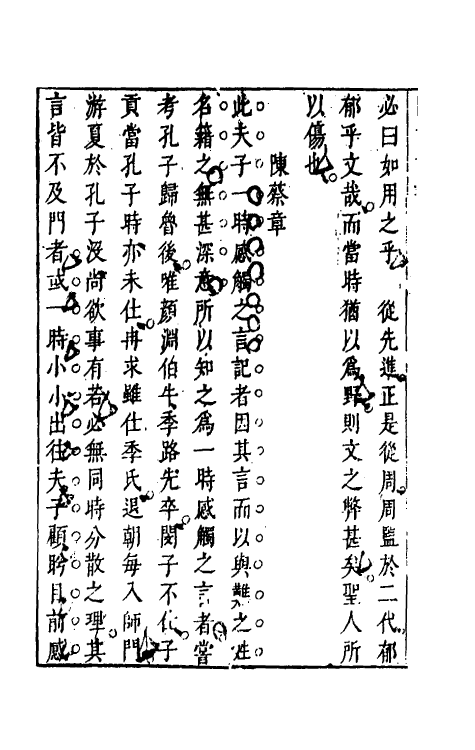 必曰如用之乎　從先進正是從周周監於二代郁
郁乎文哉而當時猶以為野則文之弊甚矣聖人所
以傷也
陳蔡章
此夫子一時感觸之言記者因其言而以與難之姓
名籍之無甚深意所以知之為一時感觸之言者嘗
考孔子歸魯後唯顏淵伯牛季路先卒閔子不仕子
貢當孔子時亦未仕冉求雖仕季氏退朝每入師門
游夏於孔子沒尚欲事有若必無同時分散之理其
言皆不及門者或一時小小出往夫子顧盼目前感